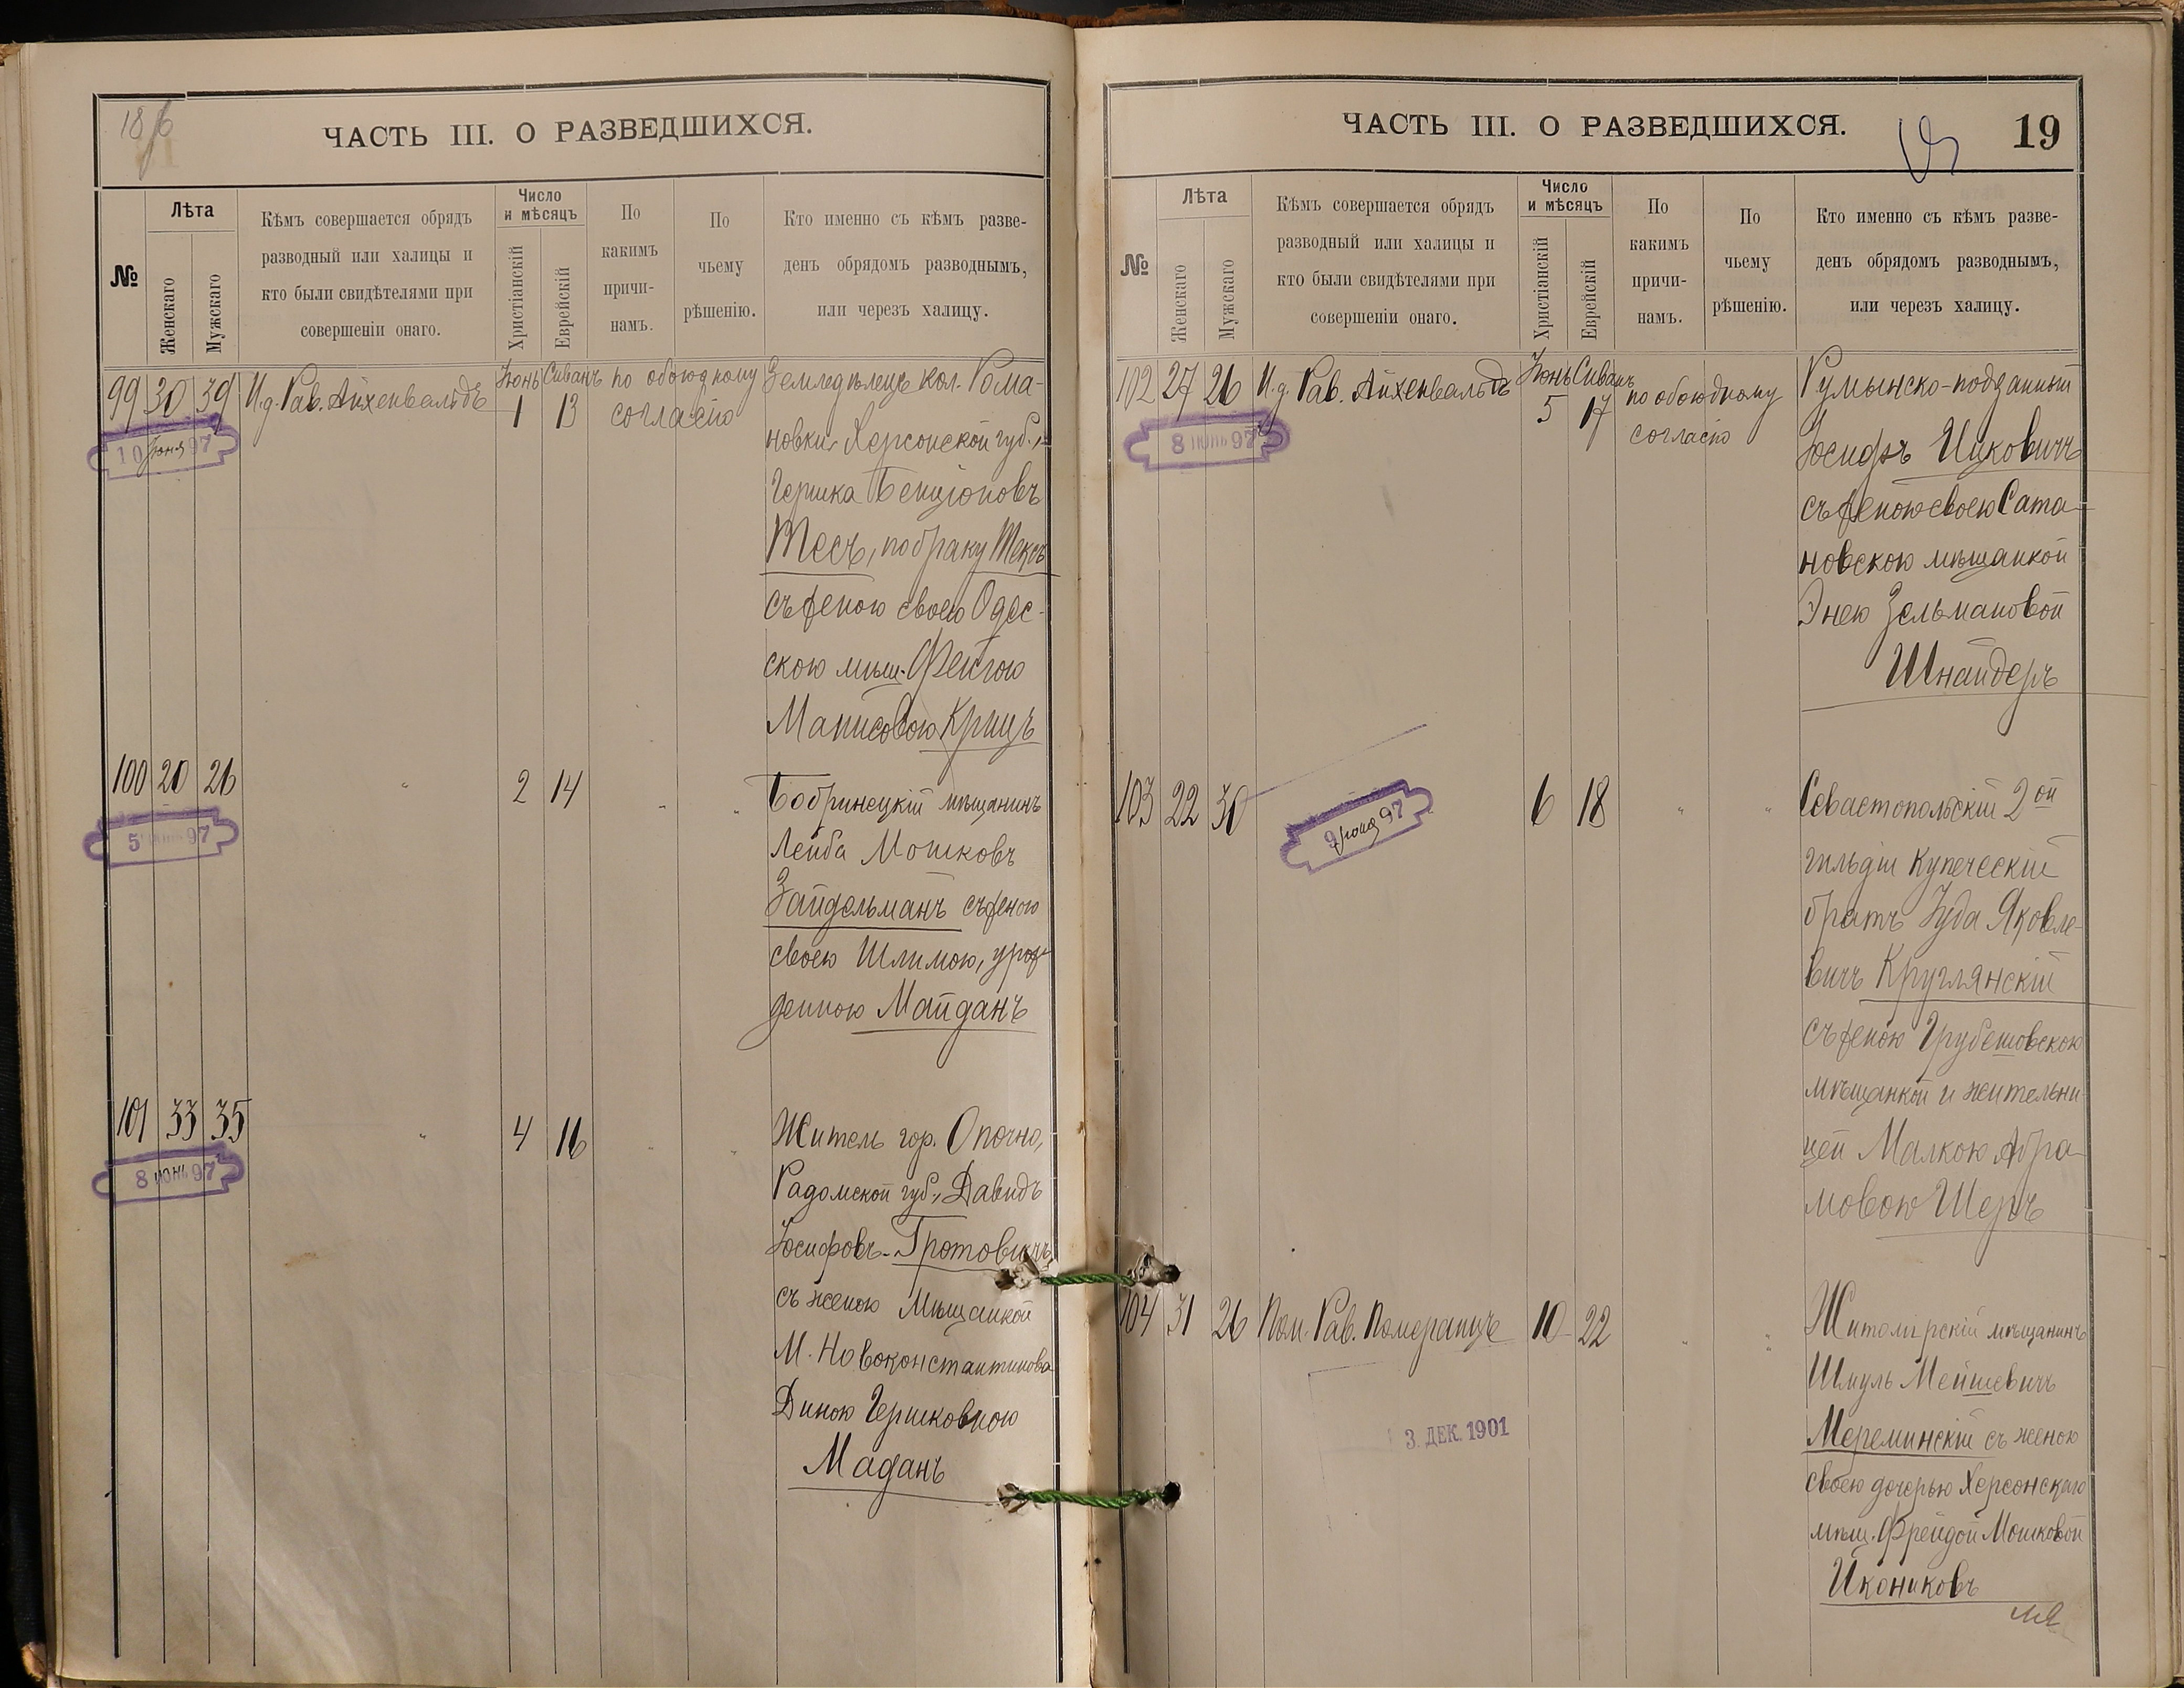 18
ЧАСТЬ III. О РАЗВЕДШИХСЯ.
№
Лѣта
Женскаго
Мужскаго
Кѣмъ совершается обрядъ
разводный или халицы и
кто были свидѣтелями при
совершеніи онаго.
Число
и мѣсяцъ
Христіанскій
Еврейскій
По
какимъ
причи-
намъ.
По
чьему
рѣшенію.
Кто именно съ кѣмъ разве-
денъ обрядомъ разводнымъ,
или черезъ халицу.
99 30 39 И.д. Рав. Айхенвальдъ Іюнь 1 Сиванъ 13 по обоюдному
согласію
10 Іюня 97
Земледѣлецъ кол. Рома-
новки, Херсонской губ.,
Гершка Бенціоновъ
Тесъ, по браку Тексъ
съ женою своею Одес-
скою мѣщ. Фейгою
Манисовою Крицъ
100 20 26 " 2 14 " "
5 97
Бобринецкій мѣщанинъ
Лейба Мошковъ
Зайдельманъ съ женою
своею Шлимою, урож-
денною Майданъ
101 33 35 " 4 16 " "
8 ІЮНЬ 97
Житель гор. Опочно,
Радомской губ., Давидъ
Іосифовъ Гротовичъ
съ женою Мѣщанкой
М. Новоконстантинова
Диною Гершковною
Маданъ
ЧАСТЬ III. О РАЗВЕДШИХСЯ.
19
№
Лѣта
Женскаго
Мужскаго
Кѣмъ совершается обрядъ
разводный или халицы и
кто были свидѣтелями при
совершеніи онаго.
Число
и мѣсяцъ
Христіанскій
Еврейскій
По
какимъ
причи-
намъ.
По
чьему
рѣшенію.
Кто именно съ кѣмъ разве-
денъ обрядомъ разводнымъ,
или черезъ халицу.
102 27 26 И.д. Рав. Айхенвальдъ Іюнь 5 Сиванъ 17 по обоюдному
согласію
8 ІЮНЬ 97
Румынско-подданный
Іосифъ Ицковичъ
съ женою своею Сата-
новскою мѣщанкой
Энею Зельмановой
Шнайдеръ
103 22 30 6 18 " "
9 Іюня 97
Севастопольскій 2ой
гильдіи Купеческій
братъ Іуда Яковле-
вичъ Круглянскій
съ женою Грубешовскою
мѣщанкой и жительни-
цей Малкою Абра-
мовою Шеръ
104 31 26 Пом. Рав. Померанцъ 10 22 " "
3. ДЕК. 1901
Житомірскій мѣщанинъ
Шмуль Мейшевичъ
Мереминскій съ женою
своею дочерью Херсонскаго
мѣщ. Фрейдой Мошковой
Икониковъ